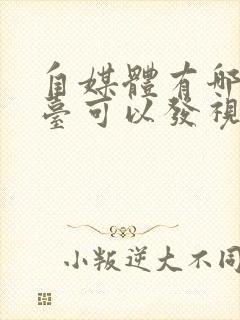 自媒體有哪
臺可以發視
小叛逆大不同